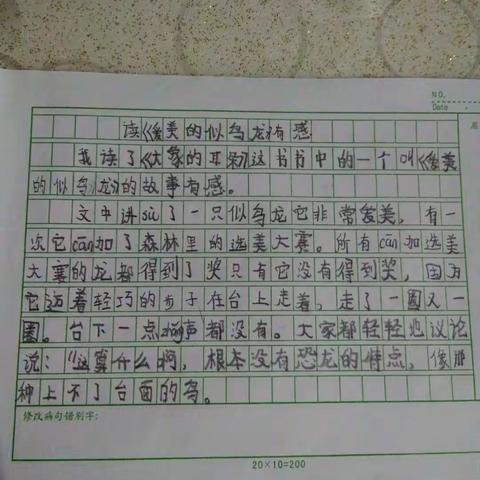 NO.
Date
读《爱美的似鸟龙》有感
我读了《大象的耳朵》这书书中的一个叫《爱美
的似鸟龙》的故事有感。
文中讲sù了一只似鸟龙它非常爱美,有一
次它cān加了森林里的选美大赛。所有cān加选美
大赛的龙都得到了奖只有它没有得到奖,因为
它迈着轻巧的步子在台上走着,走了一圈又一
圈。台下一点zhǎng声都没有。大家都轻轻地议论
说:“这算什么啊,根本没有恐龙的特点,像那
种上不了台面的鸟。
修改病句错别字:
20×10=200